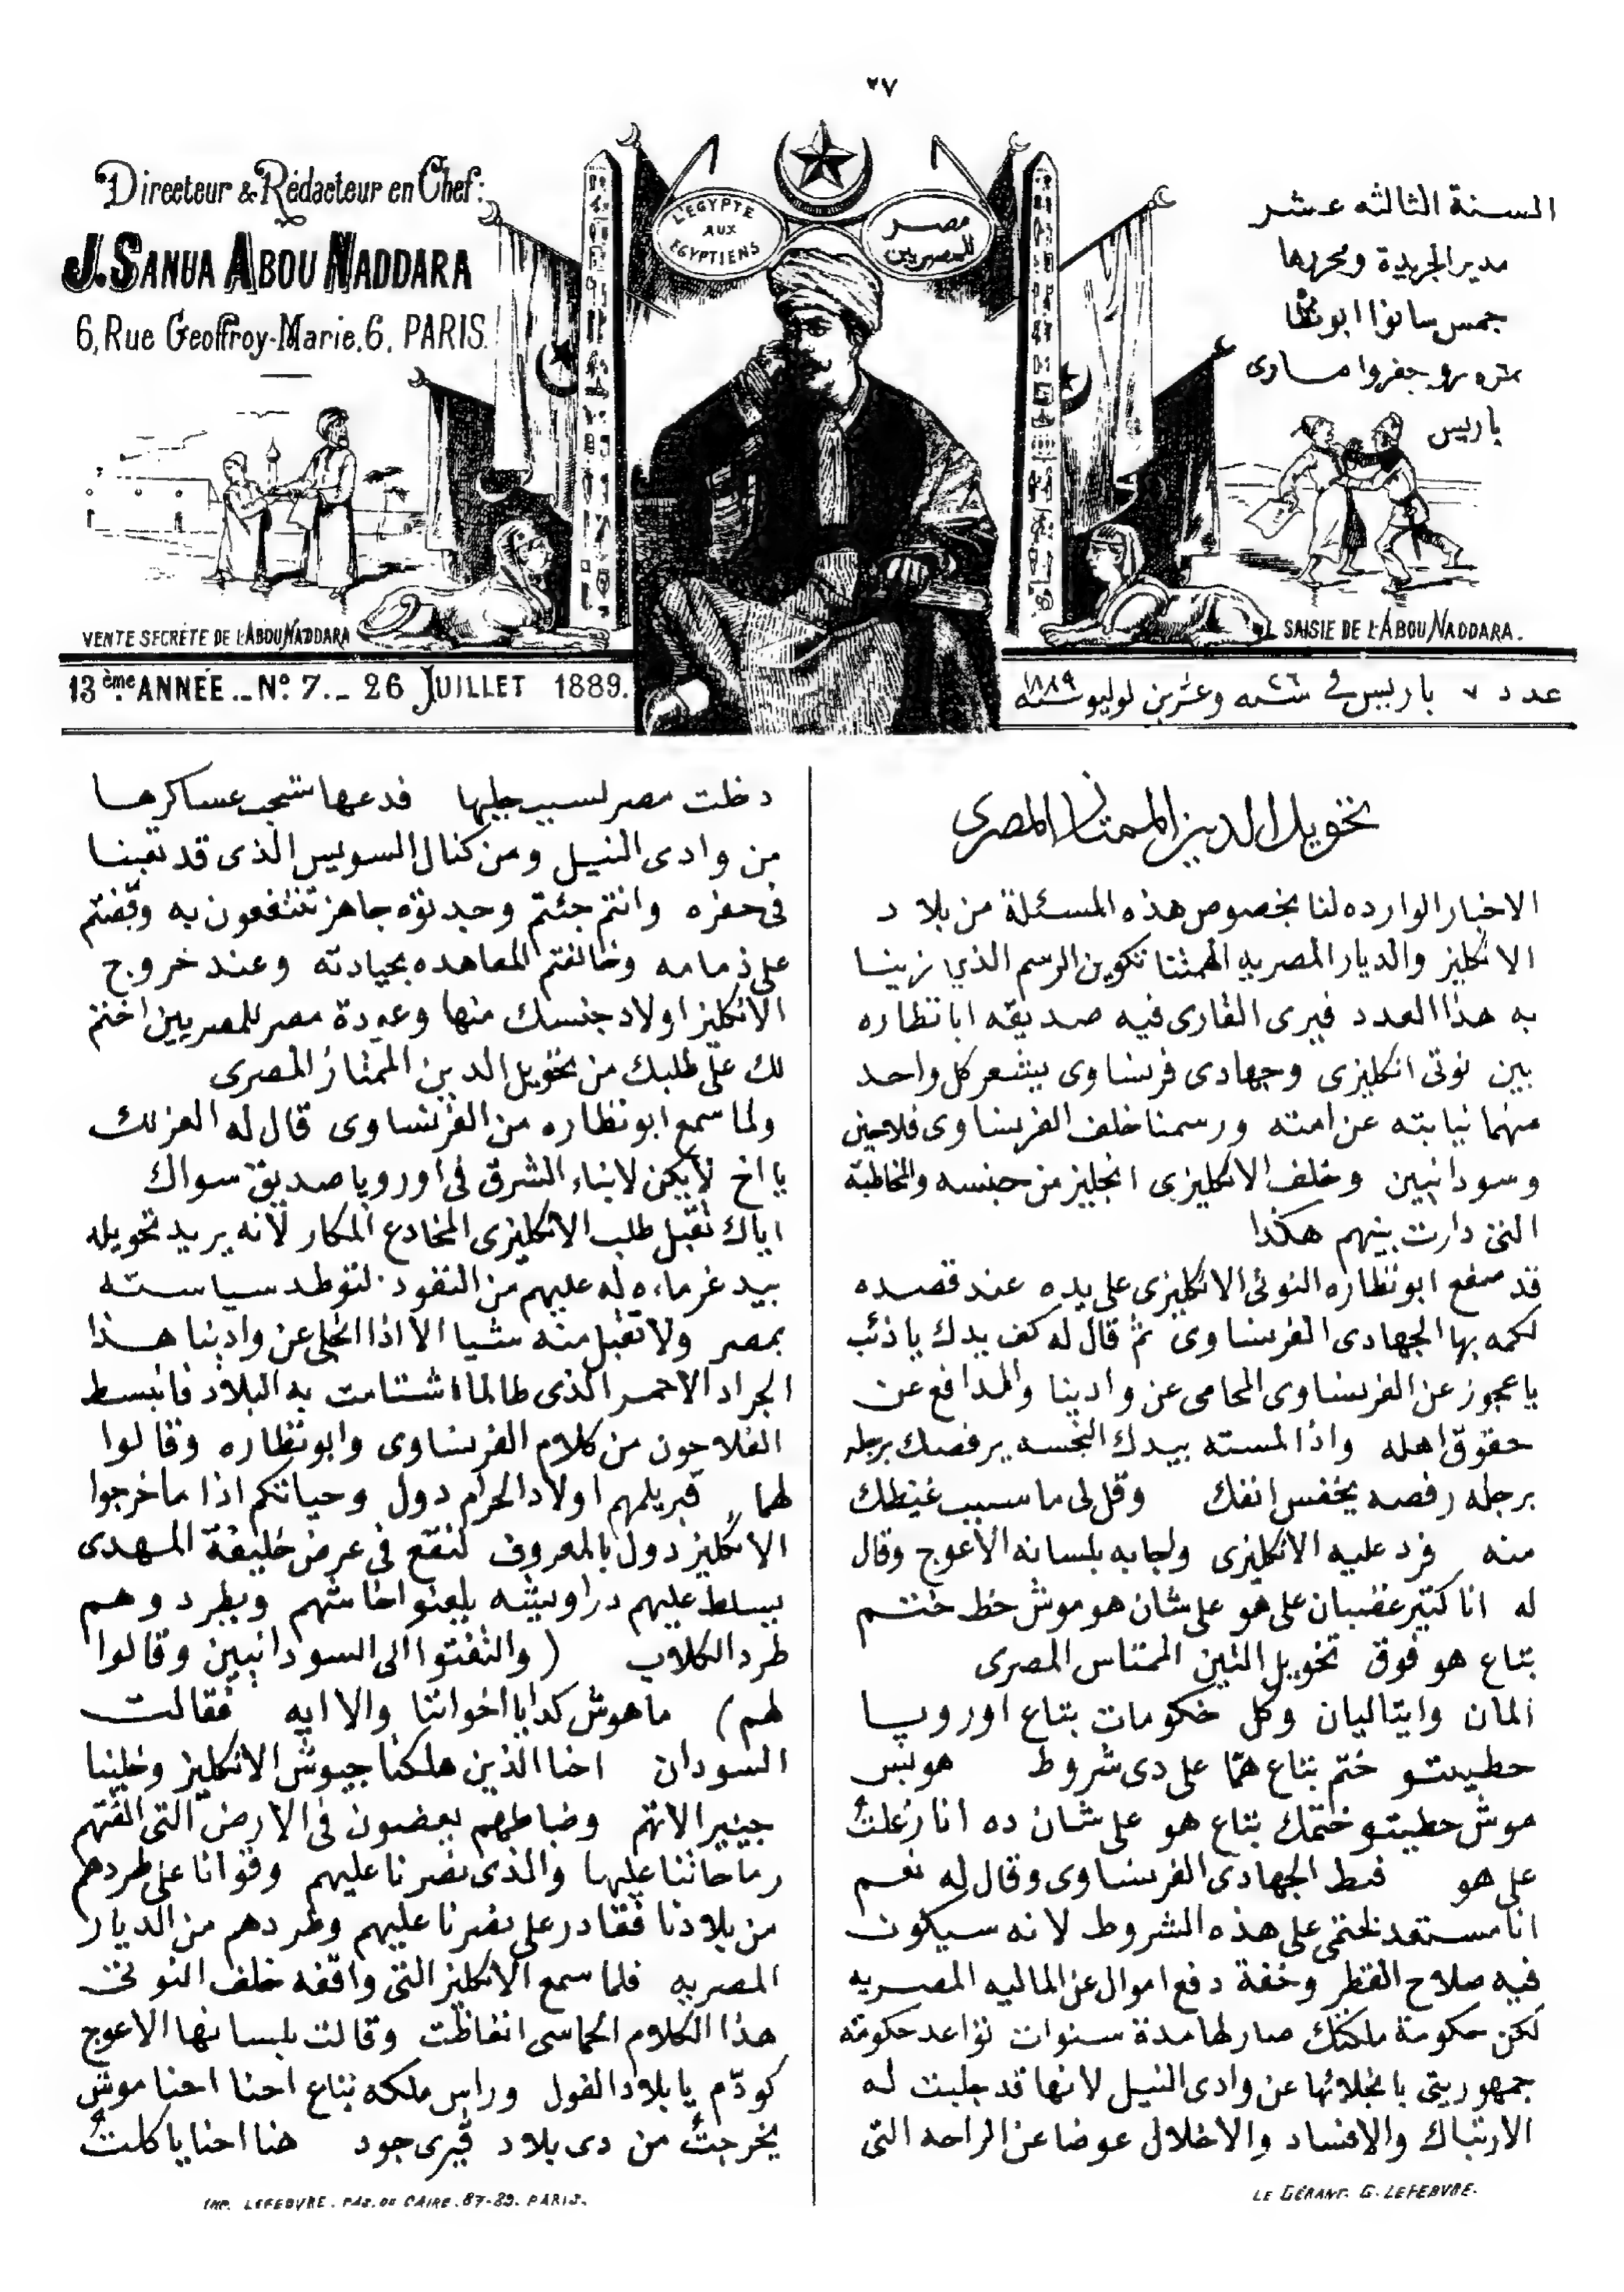 ٣٧
Directeur & Rédacteur en Chef:
J. SANUA ABOU NADDARA
6, Rue Geoffroy-Marie, 6, PARIS
L'EGYPTE
AUX
EGYPTIENS
مصر
للمصريين
السنة الثالثه عشر
مدير الجريدة ومحررها
جمس سانوا ابونظا
باريس
VENTE SECRÈTE DE L'ABOU NADDARA
SAISIE DE L'ABOU NADDARA.
13ème ANNÉE _ No. 7 _ 26 JUILLET 1889.
عدد ٧ باريس في ستة وعشرين لوليو سنه ١٨٨٩
تحويل الدين الممتاز المصرى
الاخبار الوارده لنا بخصوص هذه المسئلة من بلاد
الانكليز والديار المصريه الهمتنا تكوين الرسم الذي زينا
به هذا العدد فيرى القارى فيه صديقه ابا نظاره
بين نوتى انكليزى وجهادى فرنساوى يشعر كل واحد
منهما نيابته عن امته ورسمنا خلف الفرنساوى فلاحين
وسودانيين وخلف الانكليزى انجليز من جنسه والمخاطبة
التى دارت بينهم هكذا
قد صفع ابونظاره النوتى الانكليزى على يده عند قصده
لكمه بها الجهادى الفرنساوى ثم قال له كف يدك ياذئب
ياعجوز عن الفرنساوى المحامى عن وادينا والمدافع عن
حقوق اهله واذا لمسته بيدك النجسه يرفصك برجله
برجله رفصه يخفس انفك وقل لى ما سبب غيظك
منه فرد عليه الانكليزى ولجابه بلسانه الاعوج وقال
له انا كتير غضبان على هو على شان هو موش حط ختم
بتاع هو فوق تخويل التين الممتاس المصرى
المان وايتاليان وكل خكومات بتاع اوروپا
حطيتو ختم بتاع همّا على دى شروط هو بس
موش حطيتو ختمك بتاع هو على شان ده انا زعلت
على هو فنط الجهادى الفرنساوى وقال له نعم
انا مستعد لختمى على هذه الشروط لانه سيكون
فيه صلاح القطر وخفة دفع اموال عن الماليه المصريه
لكن حكومة ملكتك صار لها مدة سنوات تواعد حكومة
جمهوريتى بانجلائها عن وادى النيل لانها قد جلبت له
الارتباك والافساد والاخلال عوضا عن الراحه التى
دخلت مصر لسبب جلبها فدعها تسحب عساكرها
من وادى النيل ومن كنال السويس الذى قد تعبنا
فى حفره وانتم جئتم وجدتوه جاهز تنتفعون به وقبضتم
على زمامه وخالفتم المعاهده بحيادته وعند خروج
الانكليز اولاد جنسك منها وعودة مصر للمصريين اختم
لك على طلبك من تحويل الدين الممتاز المصرى
ولما سمع ابونظاره من الفرنساوى قال له العز لك
يا اخ لايكن لابناء الشرق فى اوروپا صديق سواك
اياك تقبل طلب الانكليزى المخادع المكار لانه يريد تحويله
بيد غرماء ه له عليهم من النفود لتوطد سياسته
بمصر ولا تقبل منه شيا الا اذا انجلى عن وادينا هذا
الجراد الاحمر الذى طالما اشتامت به البلاد فانبسط
الفلاحون من كلام الفرنساوى وابونظاره وقالوا
لهما قبر يلمهم اولاد الحرام دول وحياتكم اذا ما خرجوا
الانكليز دول بالمعروف لنقع فى عرض خليفة المهدى
يسلط عليهم دراويشه يلعنوا اخاشهم ويطردوهم
طرد الكلاب (والتفتوا الى السودانيين وقالوا
لهم) ماهوش كدا يا اخواتنا والا ايه فقالت
السودان احنا الذين هلكنا جيوش الانكليز وخلينا
جنيرالاتهم وضباطهم يعضون فى الارض التى القتهم
رماحاتنا عليها والذى نصرنا عليهم وقوانا على طردهم
من بلادنا فقادر على نصرنا عليهم وطردهم من الديار
المصريه فلما سمع الانكليز التى واقفه خلف النوتى
هذا الكلام الحماسى انغاظت وقالت بلسانها الاعوج
كودّم يا بلاد الفول وراس ملكه بتاع احنا احنا موش
يخرجت من دى بلاد ڤيرى جود هنا احنا ياكلت
IMP. LEFEBVRE. PAS. DU CAIRE. 87-89. PARIS.
LE GÉRANT. G. LEFEBVRE.